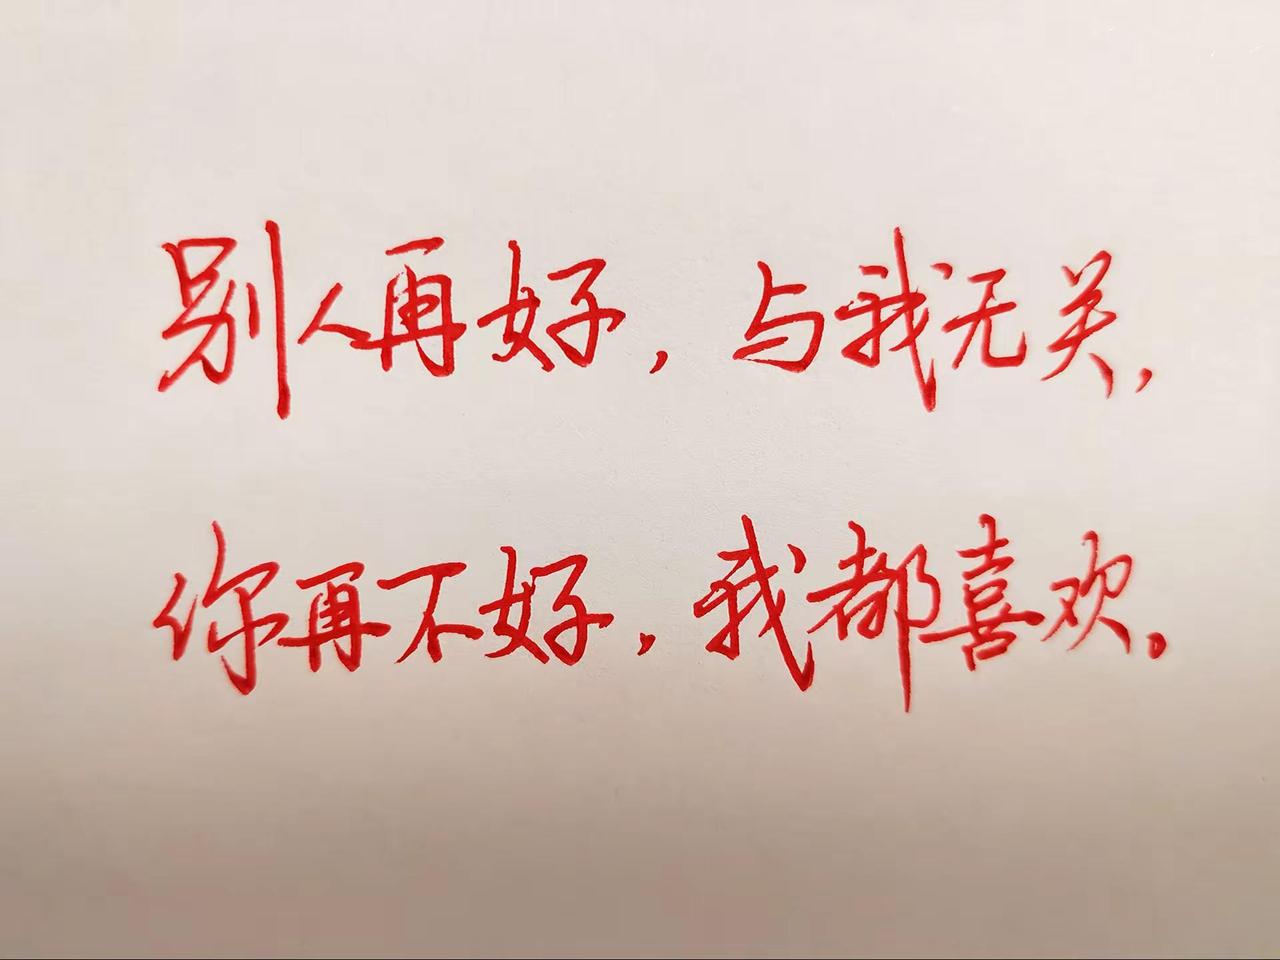 别人再好，与我无关，
你再不好，我都喜欢。